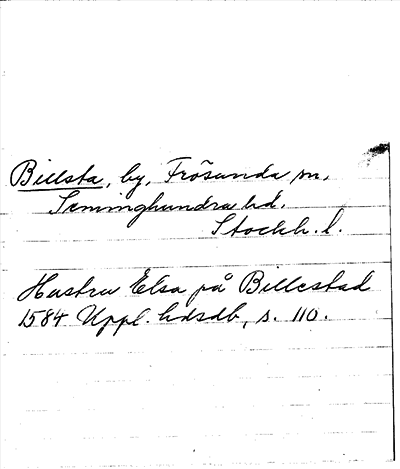 Billsta, by, Frösunda sn,
Seminghundra hd.
Stockh. l.
Hustru Elsa på Billestad
1584 Uppl. hdsdb, s. 110.